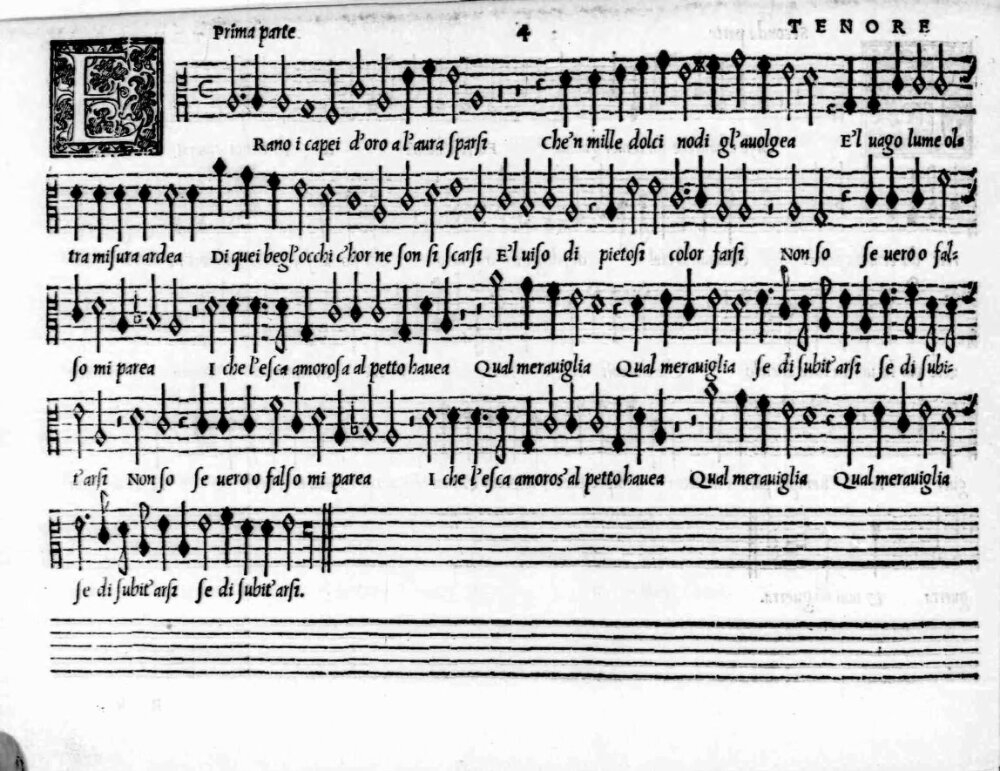 Prima parte 4 TENORE
E
Rano i capei d'oro a l'aura ſparſi Che'n mille dolci nodi gl'auolgea E'l uago lume ol=
tra miſura ardea Di quei begl'occhi c'hor ne ſon ſi ſcarſi E'l uiſo di pietoſi color farſi Non ſo ſe uero o fal=
ſo mi parea I che l'eſca amoroſa al petto hauea Qual merauiglia Qual merauiglia ſe di ſubit'arſi ſe di ſubi=
t'arſi Non ſo ſe uero o falſo mi parea I che l'eſca amoroſ'al petto hauea Qual merauiglia Qual merauiglia
ſe di ſubit'arſi ſe di ſubit'arſi.